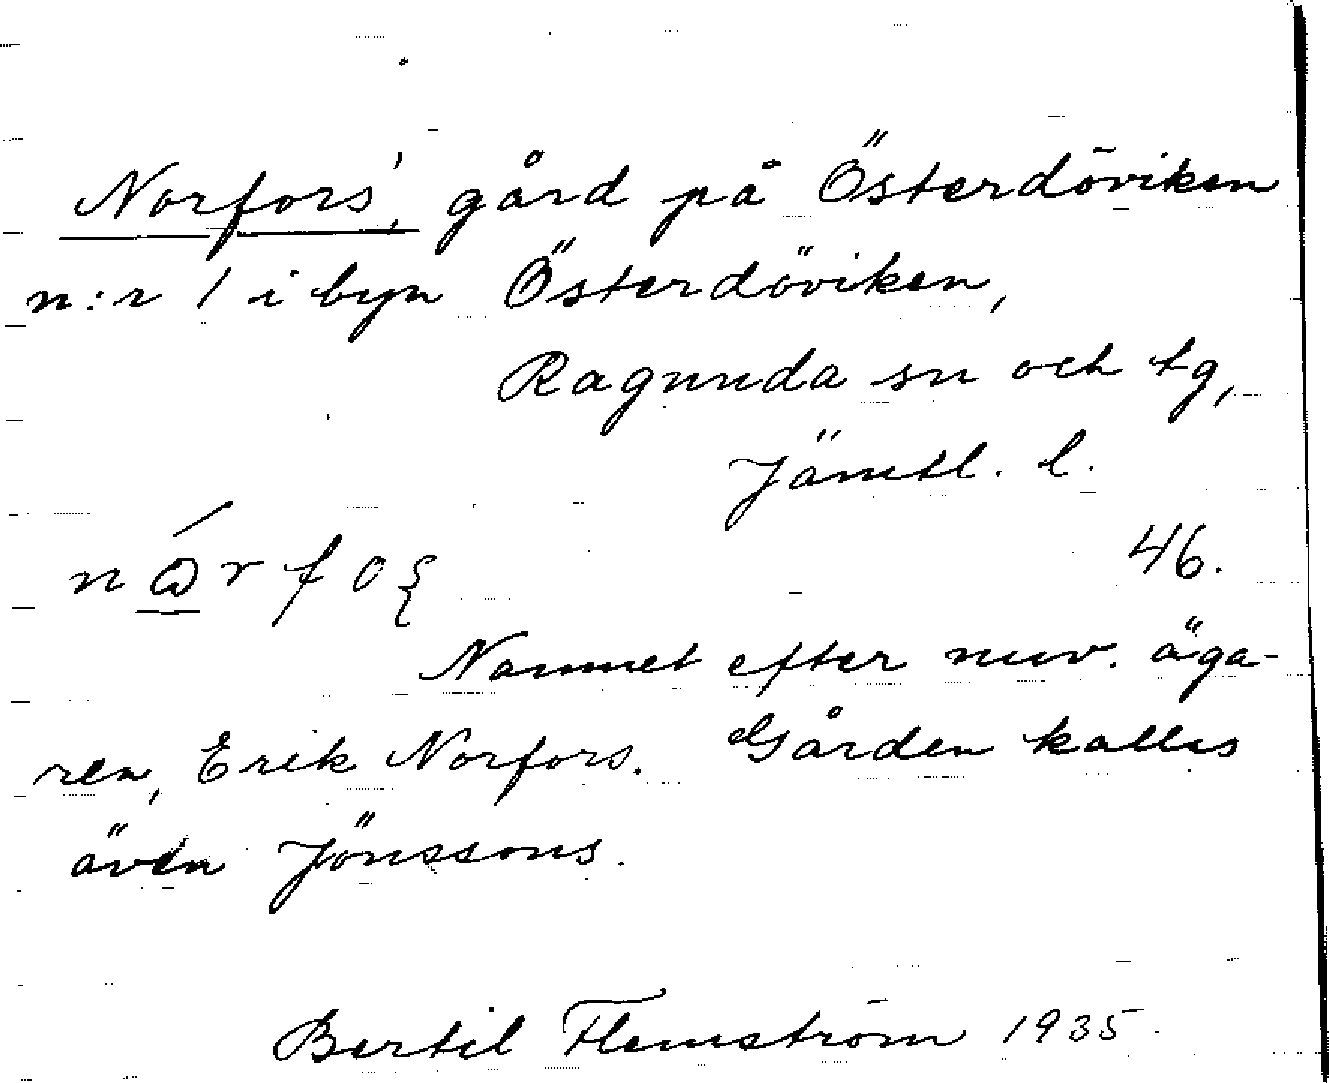 Norfors', gård på Österdöviken
n:r 1 i byn Österdöviken,
Ragunda sn och tg,
Jämtl. l.
46.
Namnet efter nuv. äga-
ren, Erik Norfors. Gården kallas
även Jönssons.
Bertil Flemström 1935